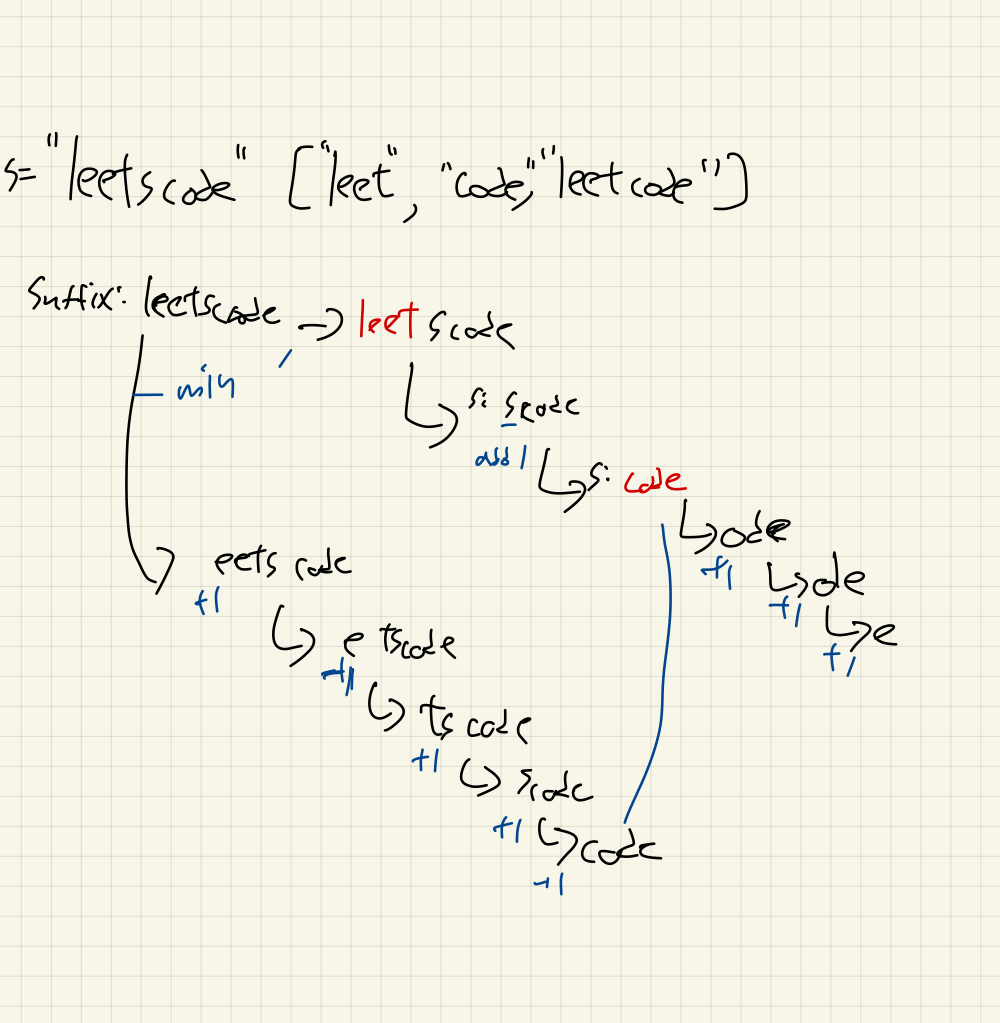 s= "leetscode" ["leet", "code," "leetcode"]
Suffix: leetscode → leet scode
min
s: scode
add 1
s: code
ode
+1
de
+1
e
+1
eets code
+1
etscode
+1
ts code
+1
scode
+1
code
+1